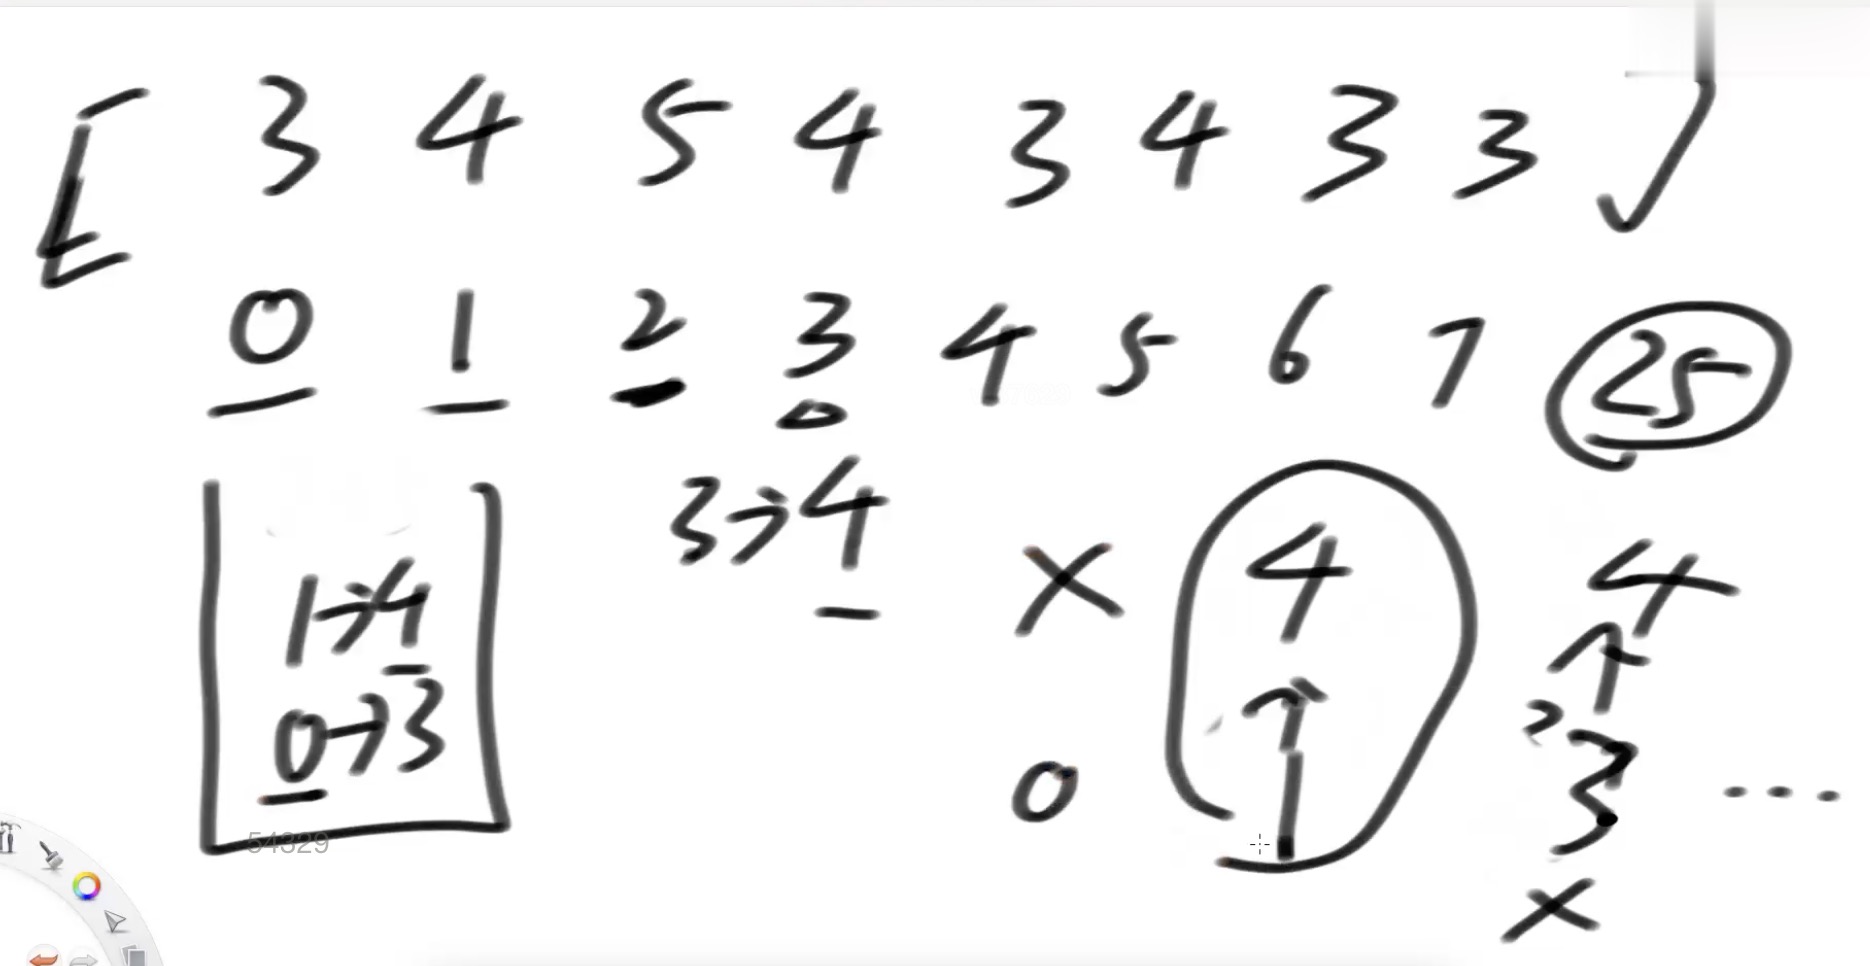 [ 3 4 5 4 3 4 3 3 ]
0 1 2 3 4 5 6 7 25
3→4
1→4
0→3
x 4 4
↑ ↑
0 1 3 ...
x
54329